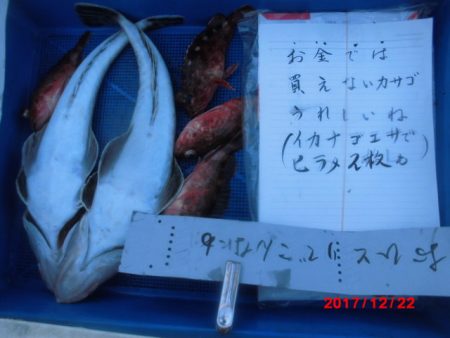 お金では
買えないカサゴ
うれしいね
(イカナゴエサで
ヒラメ2枚も)
2017/12/22